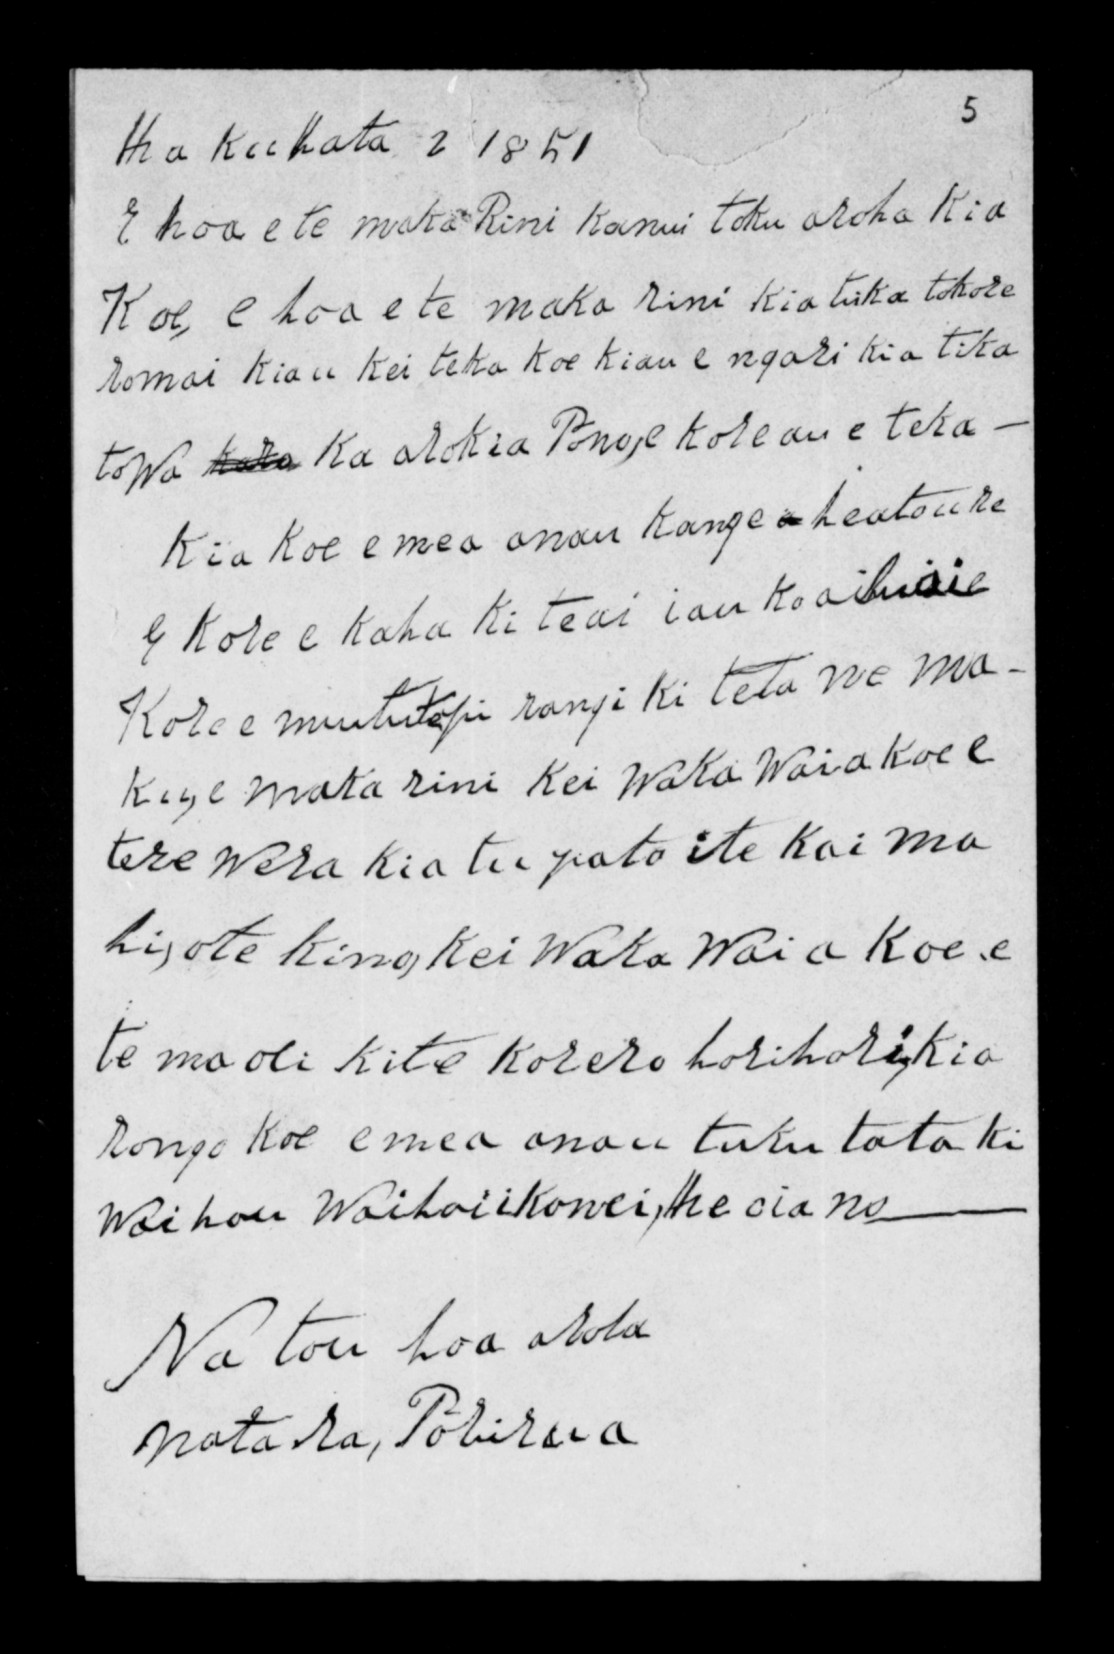 5
Ha Kuhata 2 1851
E hoa e te maka Rini kanui toku aroha Kia
Koe, e hoa e te maka rini kia tuka tokore
romai kiau kei teka koe kiau e ngari kia tika
towa Ka arokia Pono, e kore au e teka —
kia koe e mea anau kange a heatoure
E Kore e kaha ki teai iau ko ai
Kore e rangi ki teta we ma-
ku, e maka rini kei Waka Wai a koe e
tere Wera kia tu pato i te kai ma
hi, ote king, kei Waka Wai a Koe. e
te maoli kite korero horihori, kia
rongo koe e mea anau tuku tata ki
Waihou Waihoiikowei, Heoiano
Na tou hoa arola
natana, Porirua